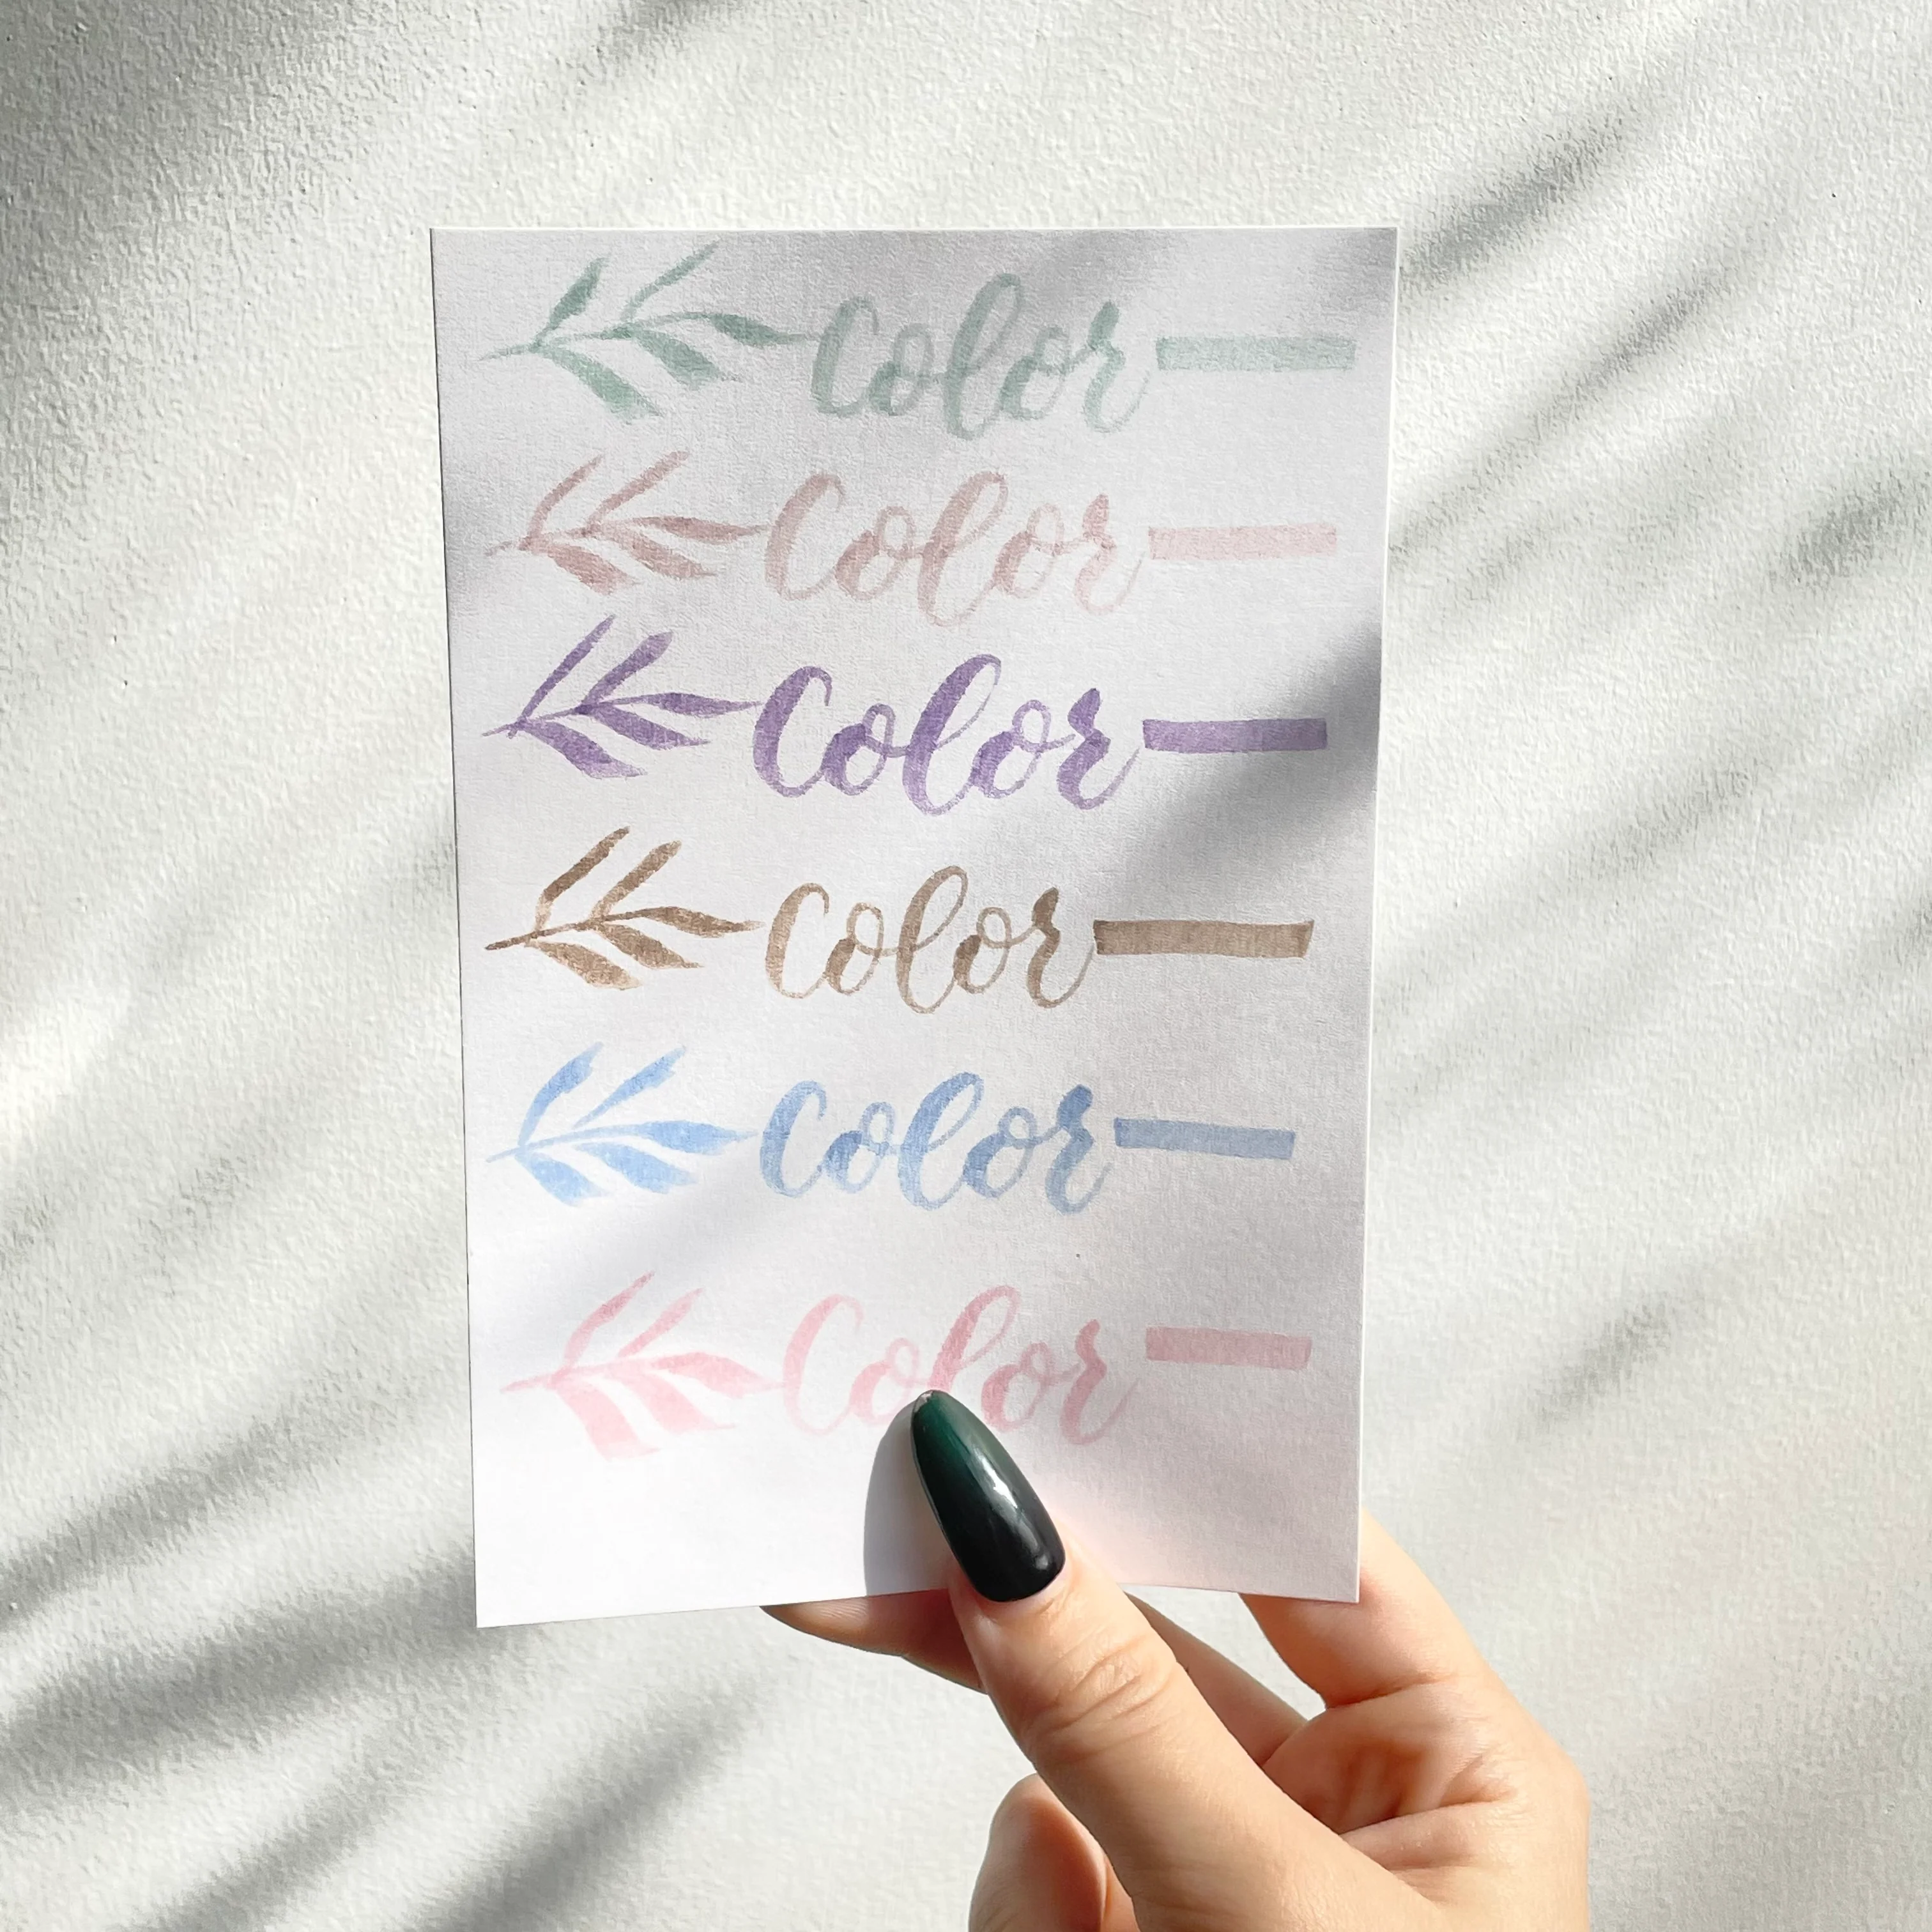 Color
Color
Color
Color
Color
Color